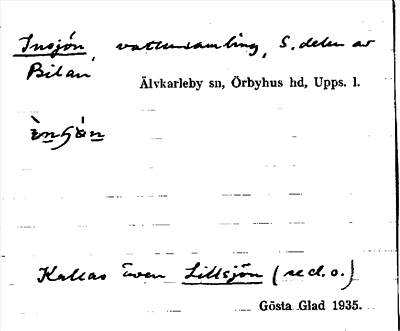 Insjön, vattensamling, S. delen av
Bilan,
Älvkarleby sn, Örbyhus hd, Upps. l.
Kallas även Lillsjön (se d. o.)
Gösta Glad 1935.